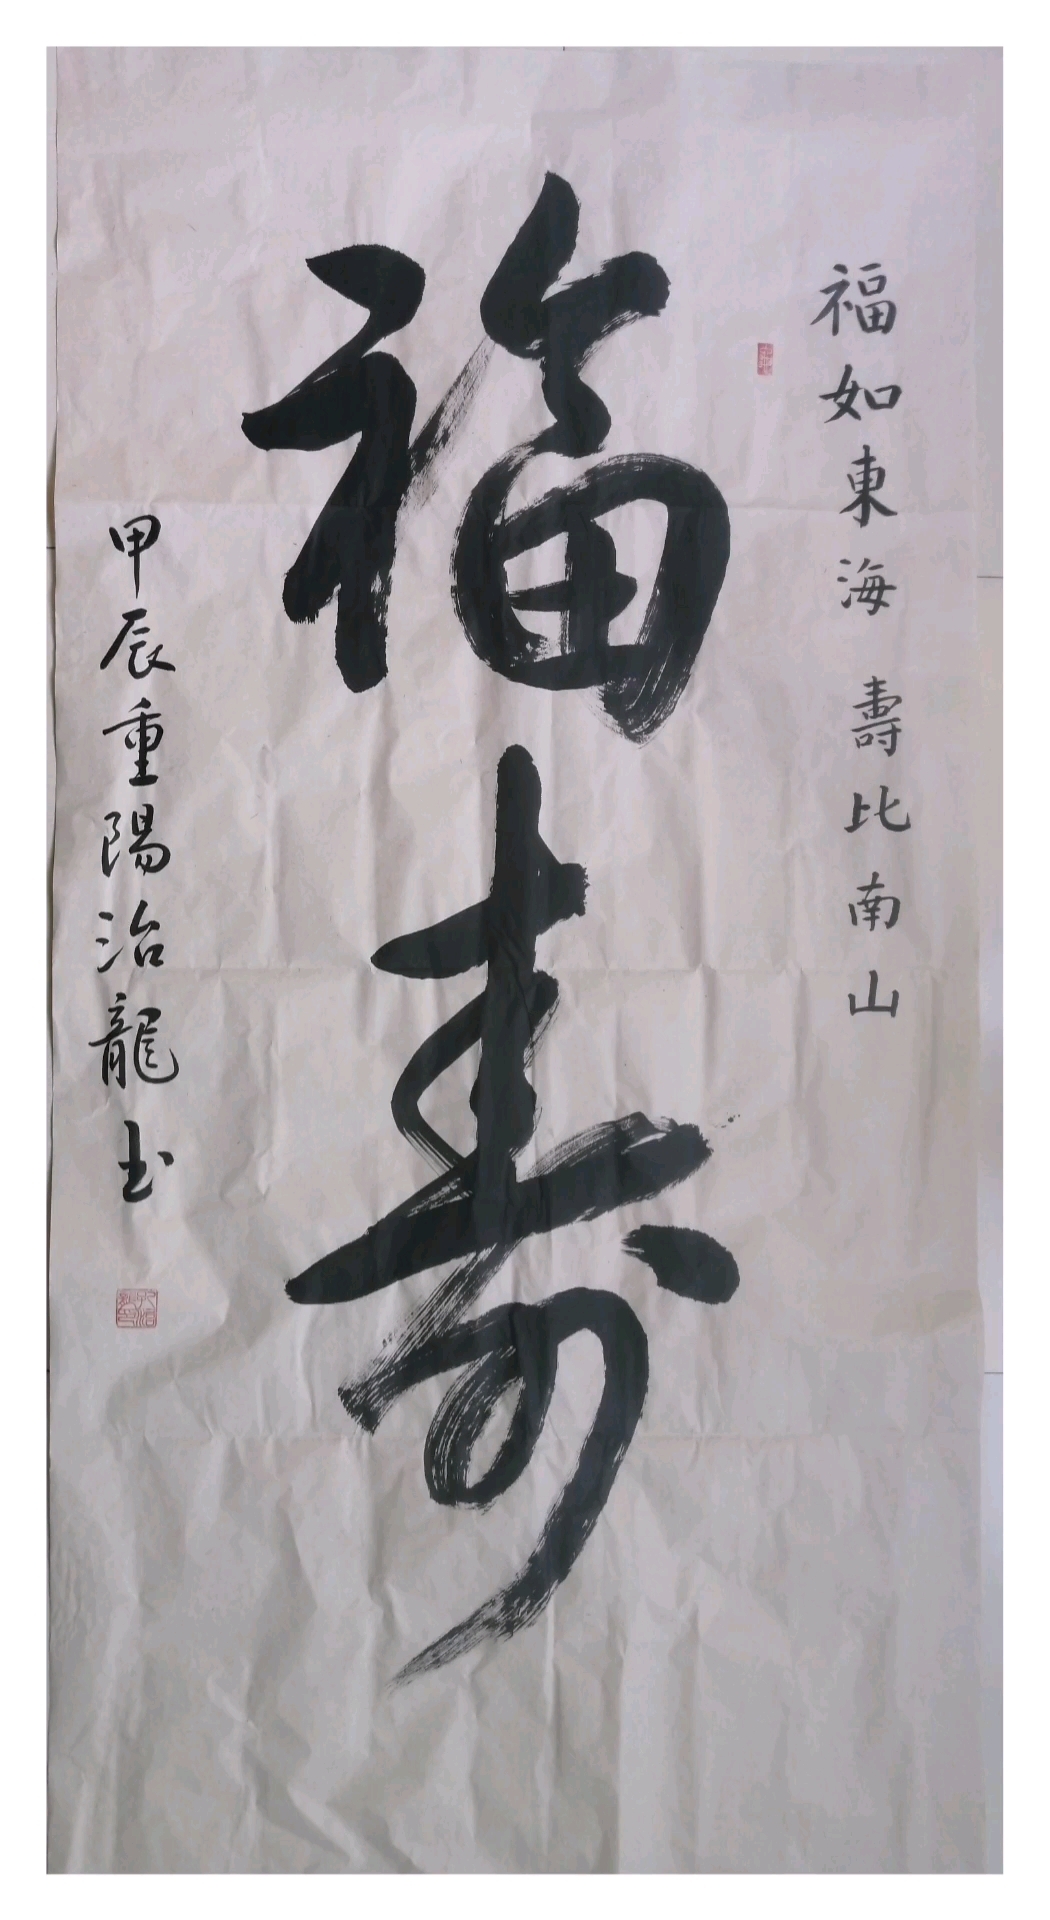 福如東海 壽比南山
福寿
甲辰重陽治龍书